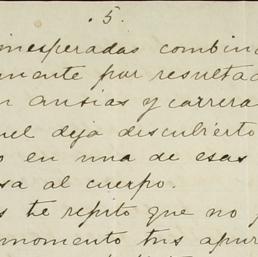 . 5.
inesperadas combina
mente por resultad
n ansias y carrera
uel deja descubierto
o en una de esas
sa al cuerpo.
s te repito que no p
momento tus apur